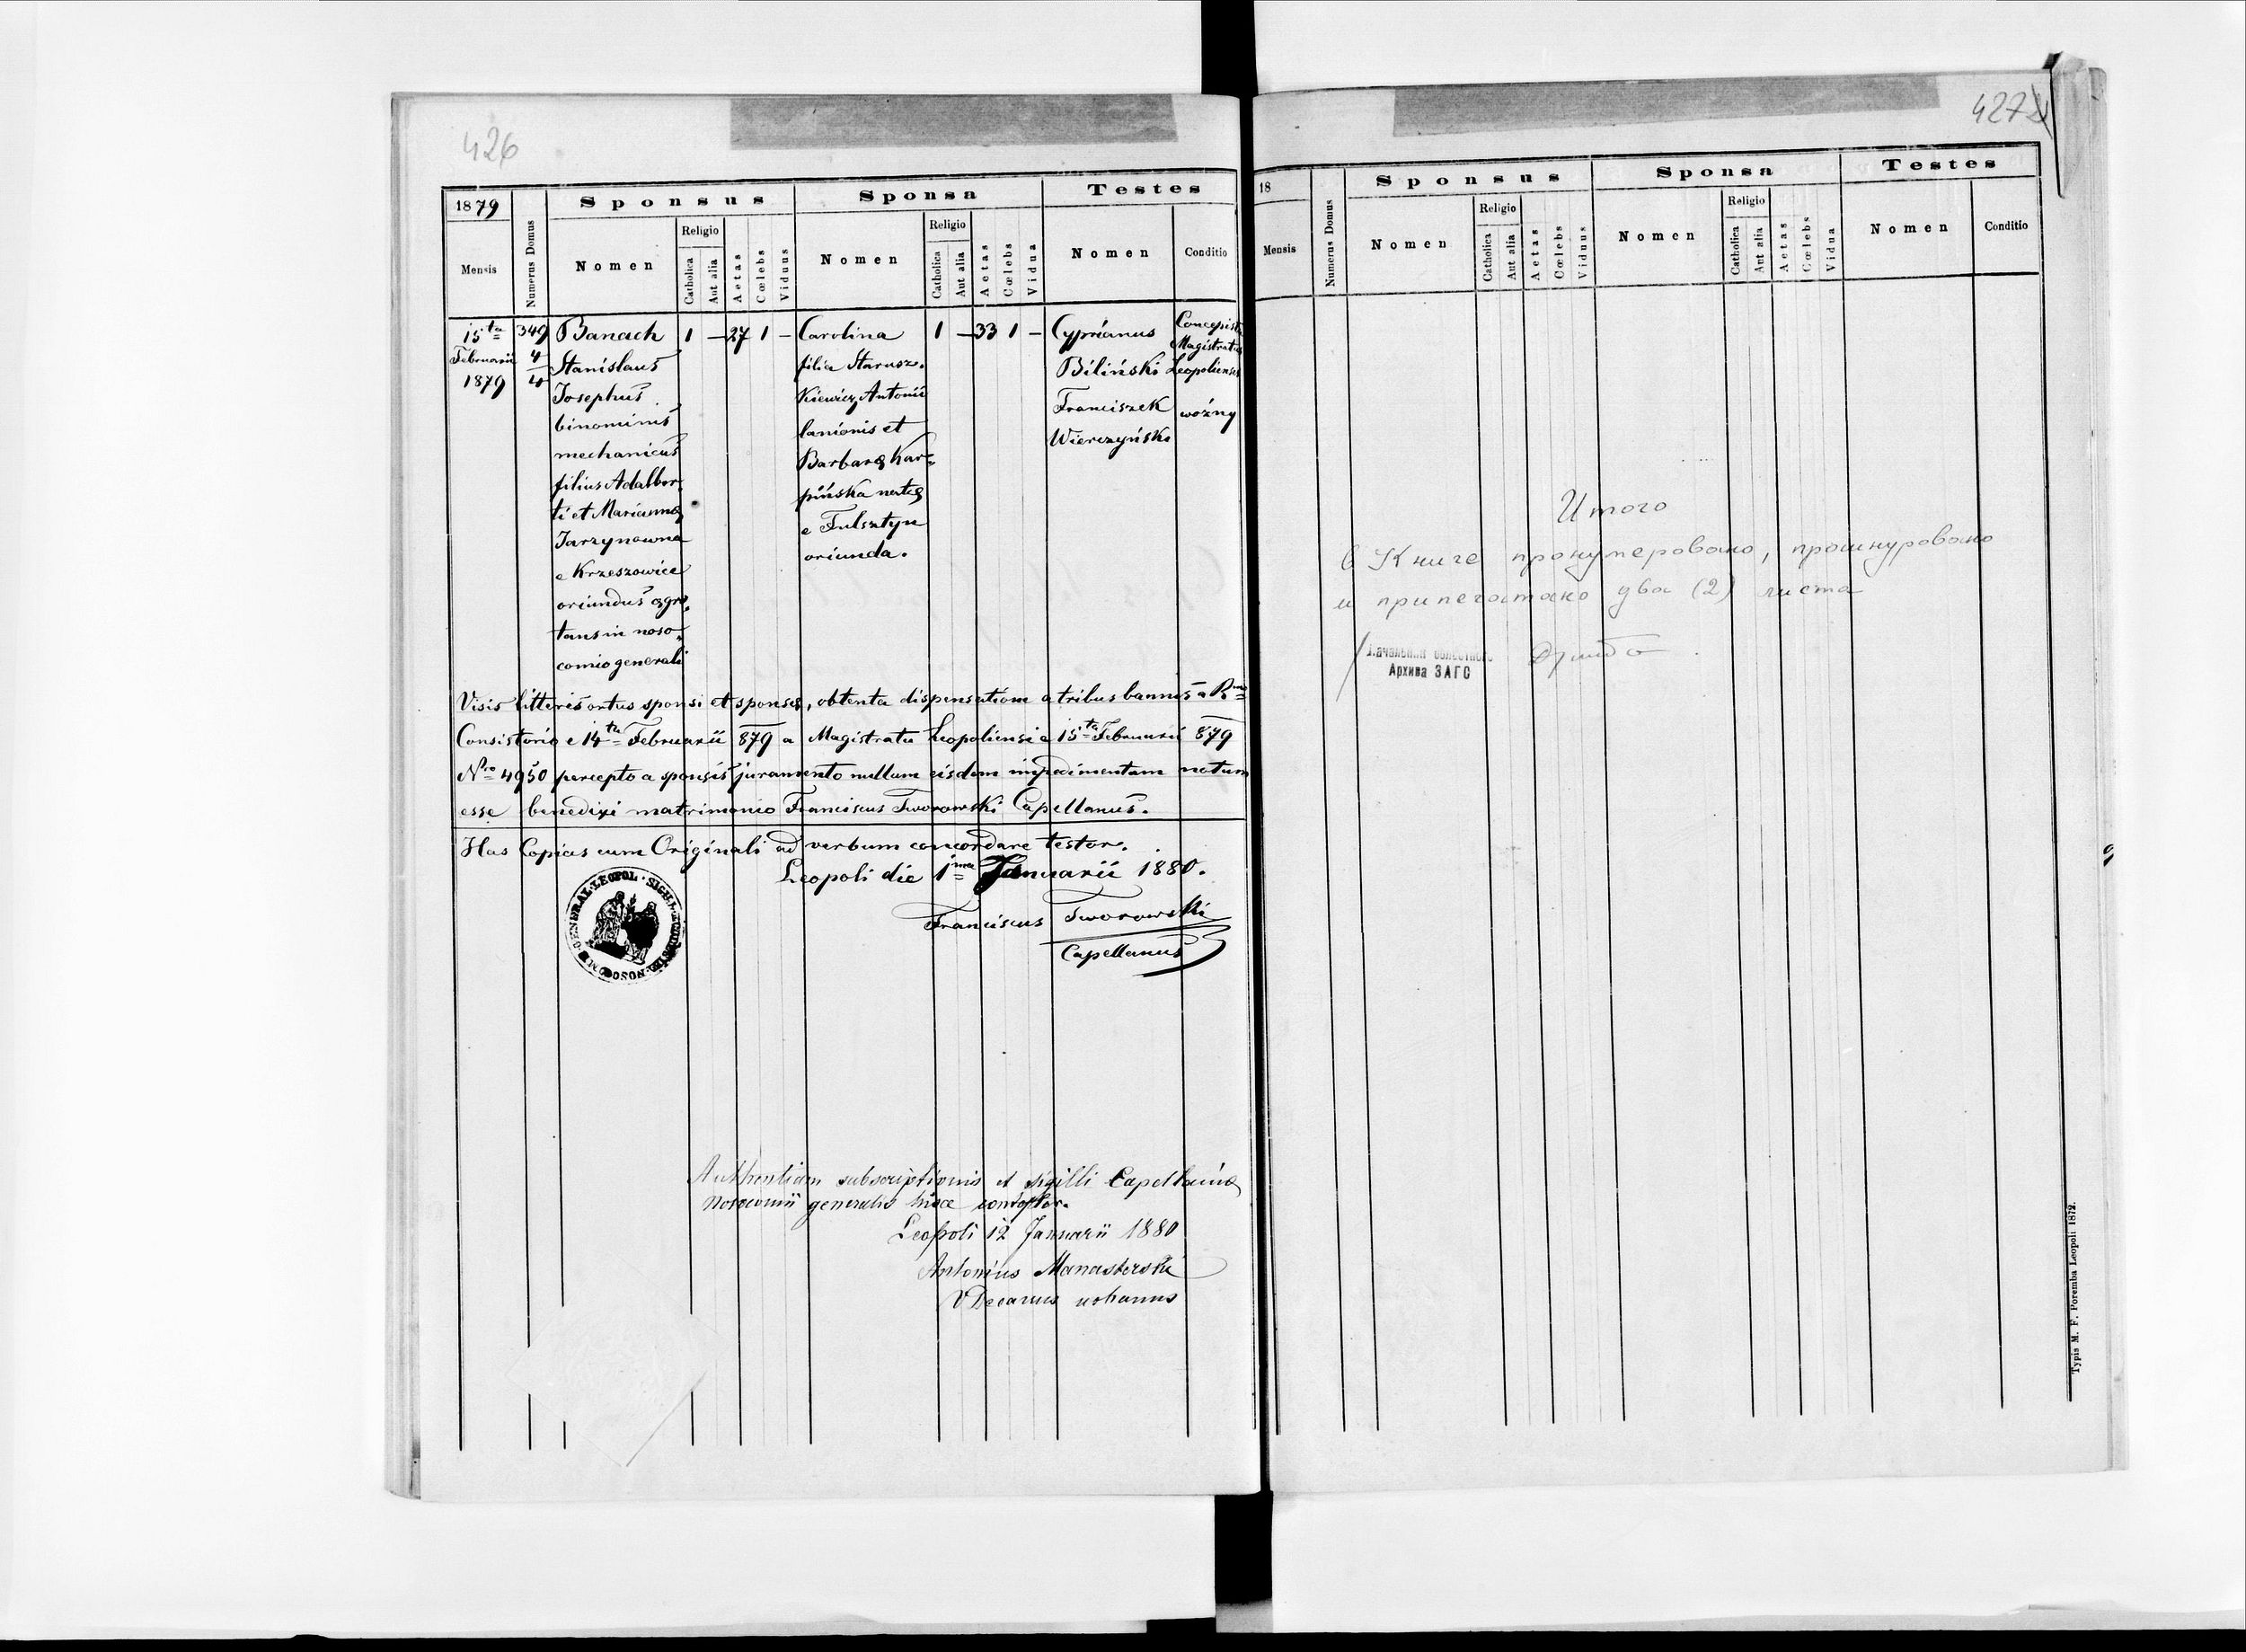 426
1879
Sponsus
Sponsa
Testes
Mensis
Numerus Domus
Nomen
Religio
Catholica
Aut alia
Aetas
Cœlebs
Viduus
Nomen
Religio
Catholica
Aut alia
Aetas
Cœlebs
Vidua
Nomen
Conditio
15ta
Februarii
1879
349
4/4
Banach
Stanislaus
Josephus
binominis
mechanicus
filius Adalber-
ti et Mariannæ
Jarzynowna
e Krzeszowice
oriundus ægro-
tans in noso-
comio generali
1 — 27 1 —
Carolina
filia Starusz-
kiewicz Antonii
lanionis et
Barbaræ Kar-
pińska natæ
e Fulsztyn
oriunda.
1 — 33 1 —
Cyprianus
Biliński
Franciszek
Wierczyński
Concepista
Magistratus
Leopoliensis
woźny
Visis litteris ortus sponsi et sponsæ, obtenta dispensatione a tribus bannis a Rmo
Consistorio e 14ta Februarii 879 a Magistratu Leopoliensi e 15ta Februarii 879
Nro 4950 percepto a sponsis juramento nullum eisdem impedimentum notum
esse benedixi matrimonio Franciscus Tworowski Capellanus.
Has Copias cum Originali ad verbum concordare testor.
Leopoli die 1ma Januarii 1880.
Franciscus Tworowski
Capellanus
GENERAL. LEOPOL. SIGILL.
Authentiam subscriptionis et sigilli Capellaniæ
Nosocomii generalis hisce contestor.
Leopoli 12 Januarii 1880
Antonius Manasterski
VDecanus urbanus
427
18
Sponsus
Sponsa
Testes
Mensis
Numerus Domus
Nomen
Religio
Catholica
Aut alia
Aetas
Cœlebs
Viduus
Nomen
Religio
Catholica
Aut alia
Aetas
Cœlebs
Vidua
Nomen
Conditio
Итого
в Книге пронумеровано, прошнуровано
и припечатано два (2) листа
Начальник областного
Архива ЗАГС
Typis M. F. Poremba Leopoli 1872.